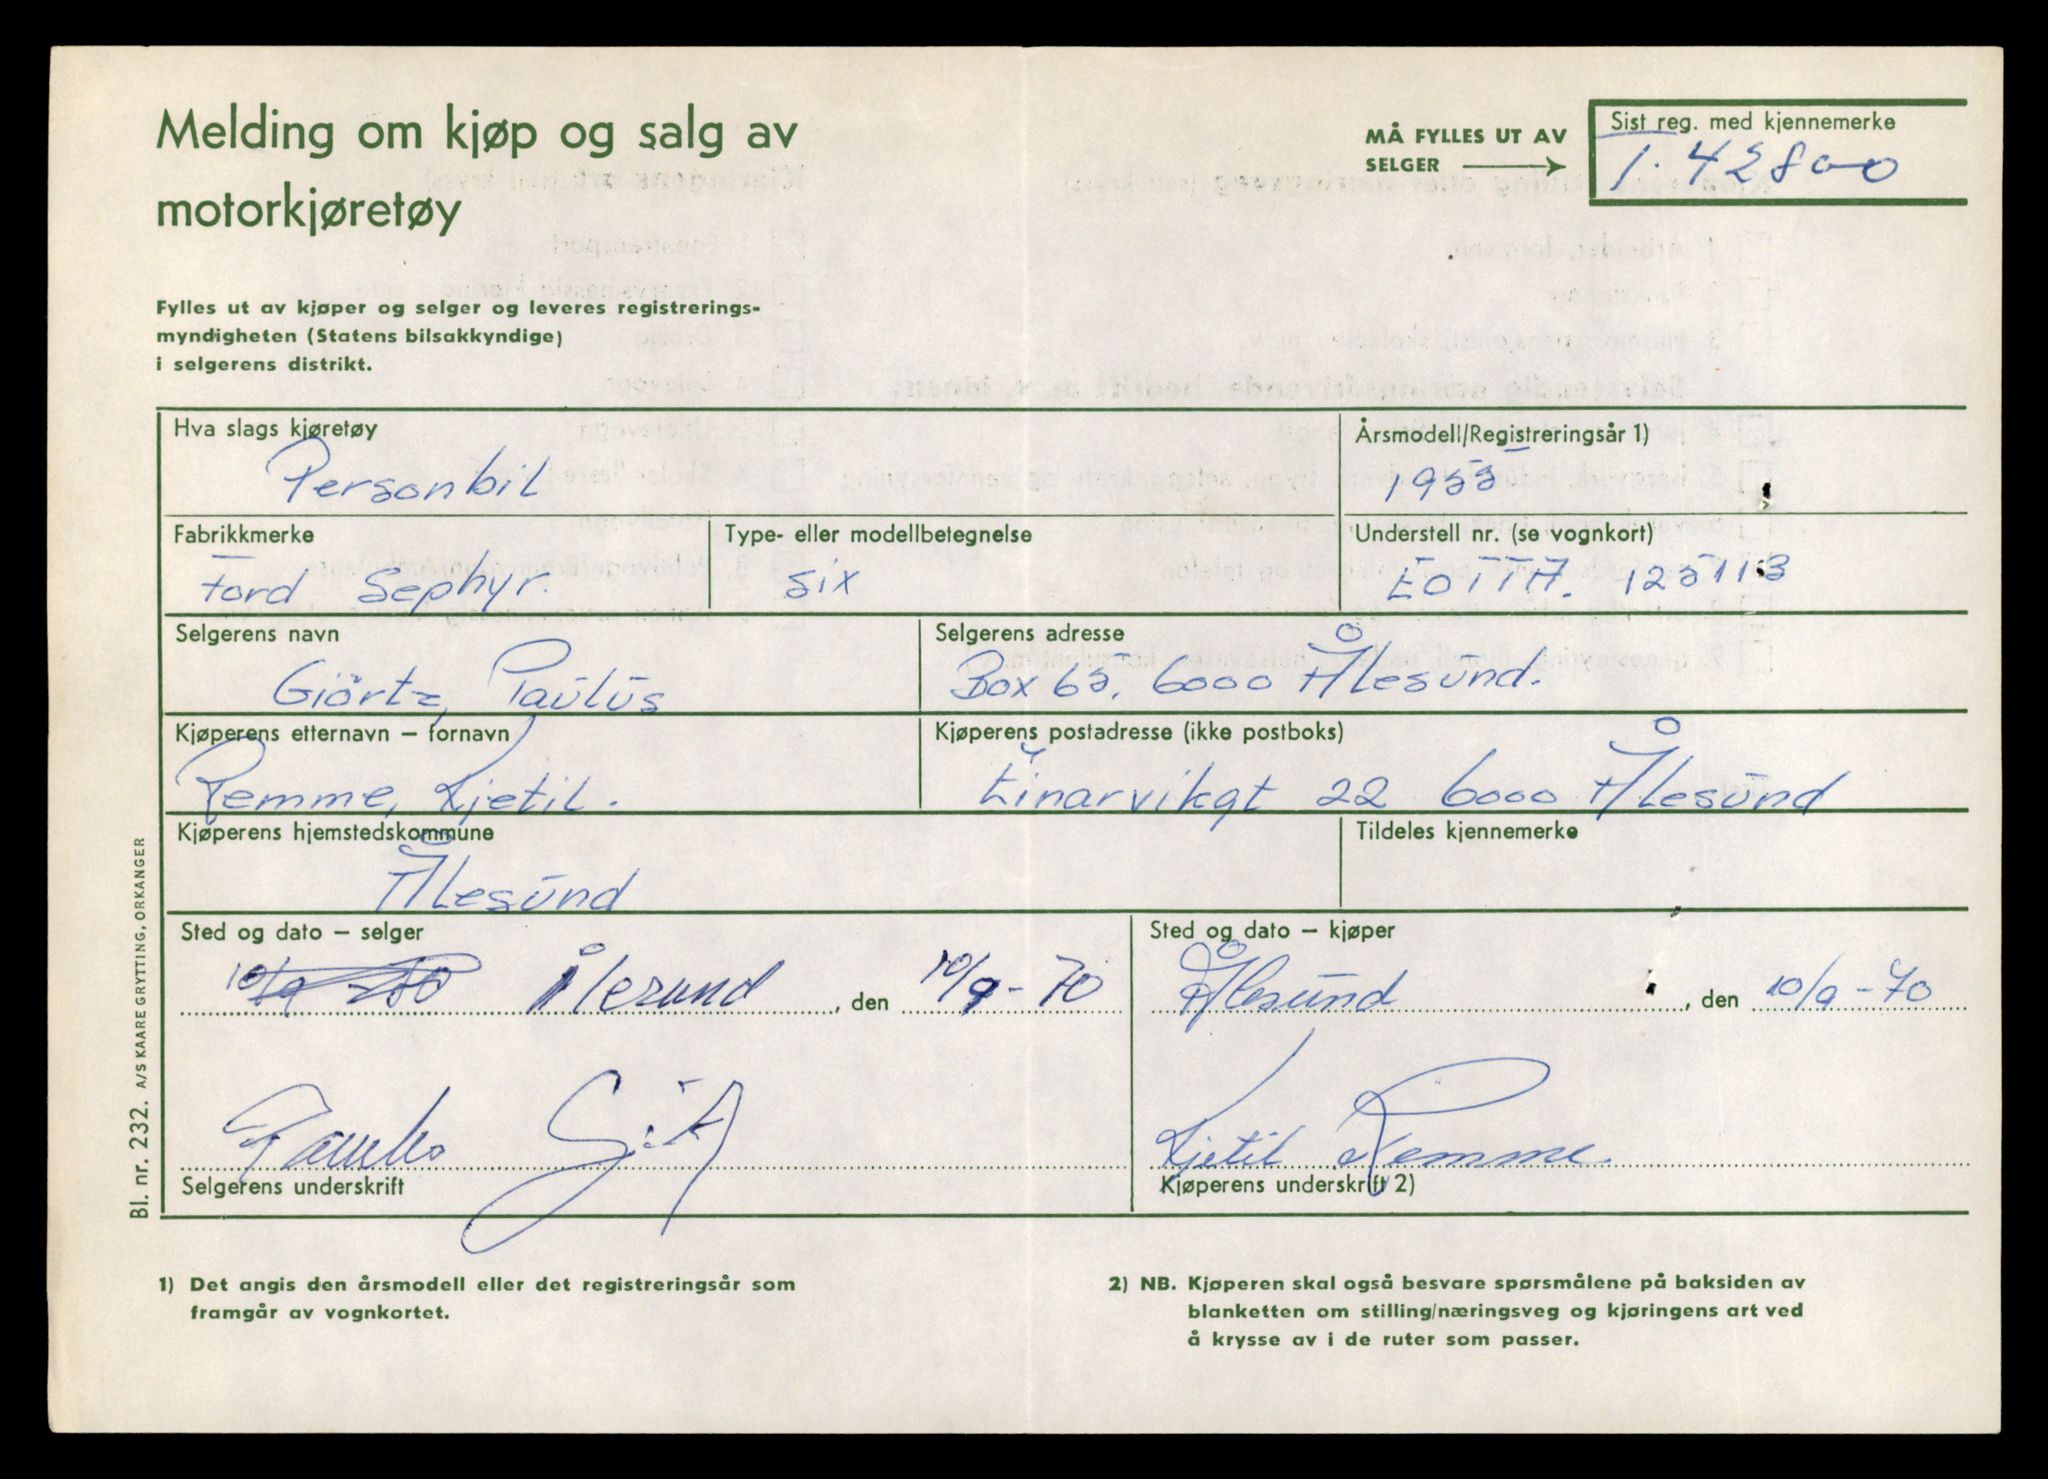 Melding om kjøp og salg av
motorkjøretøy
Fylles ut av kjøper og selger og leveres registrerings-
myndigheten (Statens bilsakkyndige)
i selgerens distrikt.
MÅ FYLLES UT AV
SELGER
Sist reg. med kjennemerke
T. 42800
Hva slags kjøretøy
Personbil
Årsmodell/Registreringsår 1)
1955
Fabrikkmerke
Ford Sephyr.
Type- eller modellbetegnelse
six
Understell nr. (se vognkort)
EOTTA. 125113
Selgerens navn
Giörtz, Paulus
Selgerens adresse
Box 65, 6000 Ålesund.
Kjøperens etternavn – fornavn
Remme, Kjetil.
Kjøperens postadresse (ikke postboks)
Einarvikgt 22 6000 Ålesund
Kjøperens hjemstedskommune
Ålesund
Tildeles kjennemerke
Sted og dato – selger
Ålesund, den 10/9-70
Sted og dato – kjøper
Ålesund, den 10/9-70
Kjetil Remme.
Selgerens underskrift
Kjøperens underskrift 2)
1) Det angis den årsmodell eller det registreringsår som
framgår av vognkortet.
2) NB. Kjøperen skal også besvare spørsmålene på baksiden av
blanketten om stilling/næringsveg og kjøringens art ved
å krysse av i de ruter som passer.
Bl. nr. 232. A/S KAARE GRYTTING, ORKANGER